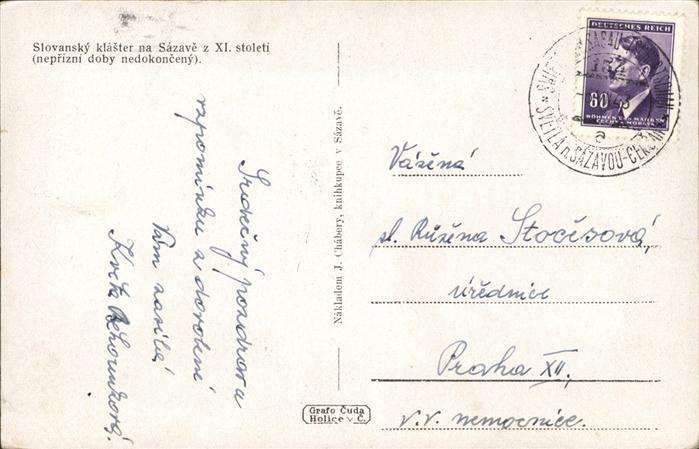 Slovanský klášter na Sázavě z XI. století
(nepřízní doby nedokončený).
Srdečný pozdrav a
vzpomínku z dovolené
Vám zasílá
Květa
Nákladem J. Chábery, knihkupce v Sázavě.
DEUTSCHES REICH
60
BÖHMEN UND MÄHREN
ČECHY A MORAVA
SVĚTLÁ n. SÁZAVOU
a
Vážená
sl. Růžena Stočesová,
úřednice
Praha XII.,
v.v. nemocnice.
Grafo Čuda
Holice v Č.